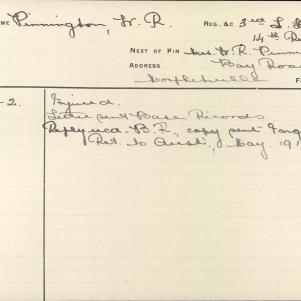 ME Pinnington, W. R. REG. &c 3rd L.
14th
NEXT OF KIN Mrs. W. R. Pinn
ADDRESS Bay Roa
-2. Injured.
Letter sent Base Records
Reply recd. B.R., copy sent
Ret. to Aust., May. 191